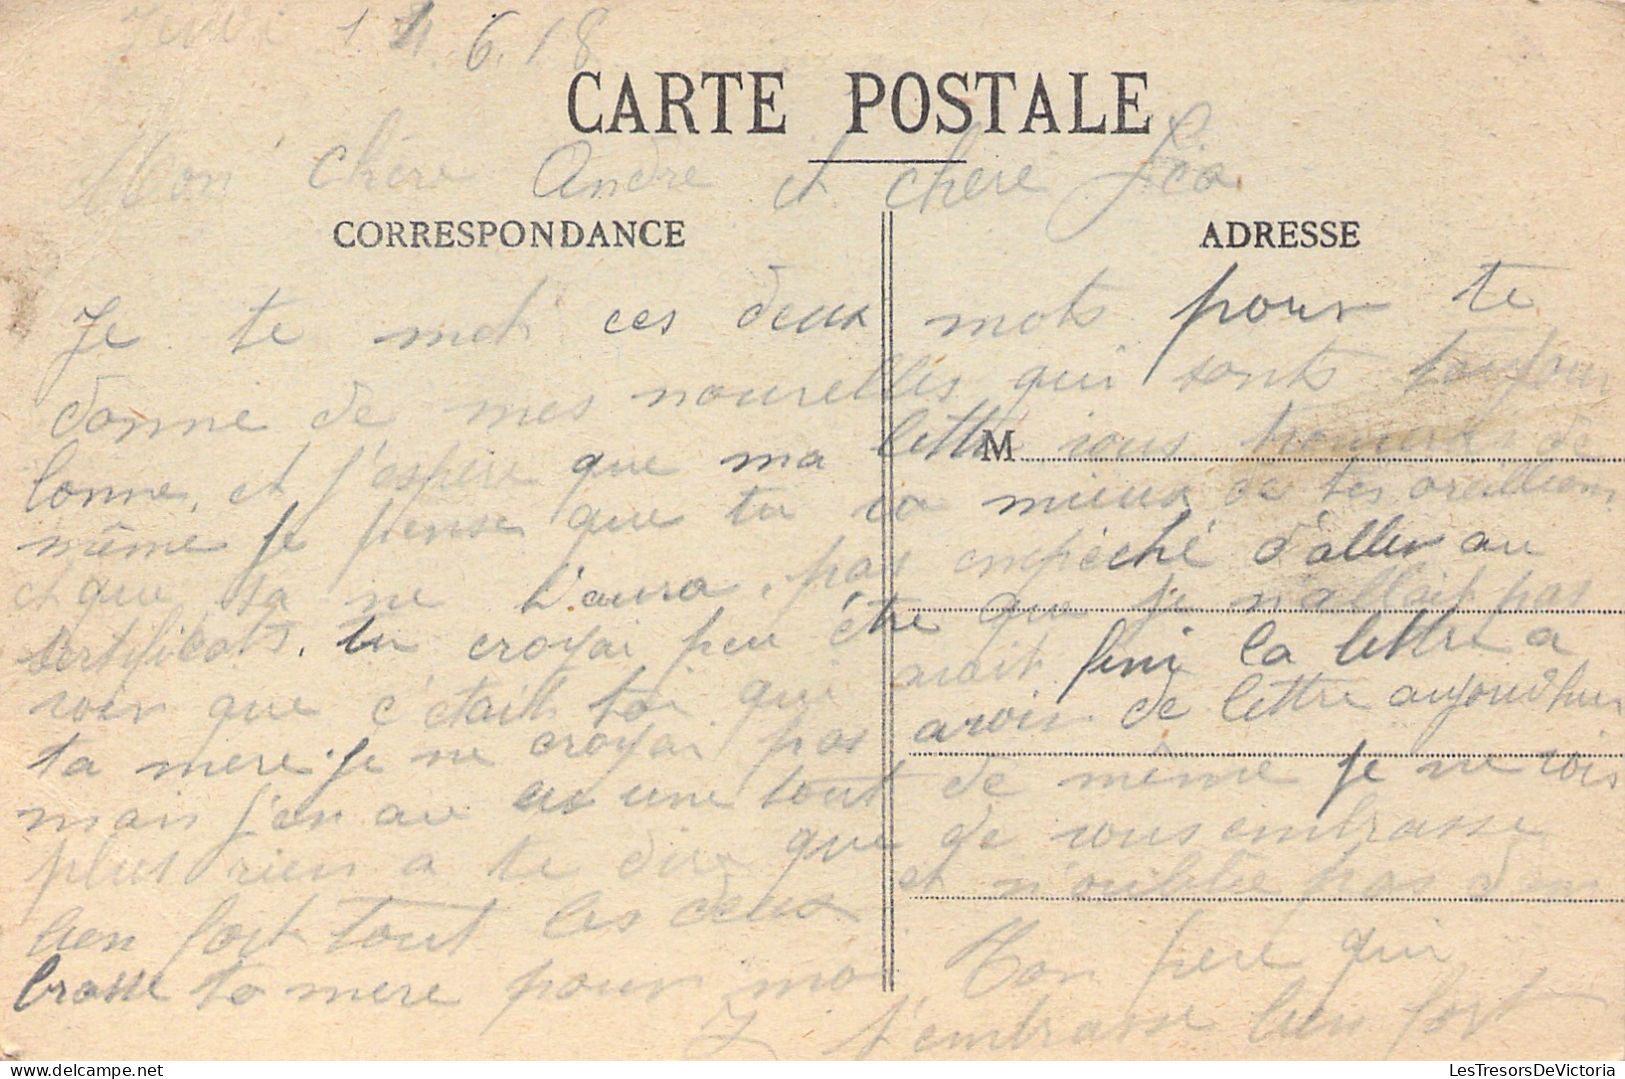 14.6.18
CARTE POSTALE
Mon chère Andre et chere Lea
CORRESPONDANCE ADRESSE
Je te mets ces deux mots pour te
donne de mes nouvelles qui sonts toujour
bonne, et j'espère que ma lettre vous trouverai de
M
même je pense que tu va mieux de tes oreillions
et que sa ne t'aura pas empéché d'aller au
certificats, tu croyai peu être que je n'allait pas
voir que c'était toi qui avait fini la lettre a
ta mere je ne croyai pas avoir de lettre aujourd'hui
mais j'en au eu une tout de même je ne vois
plus rien a te dire que de vous embrasse
bien fort tout les deux et n'oublie pas d'em
brasse ta mere pour moi. Ton pere qui
t'embrasse bien fort
LesTresorsDeVictoria